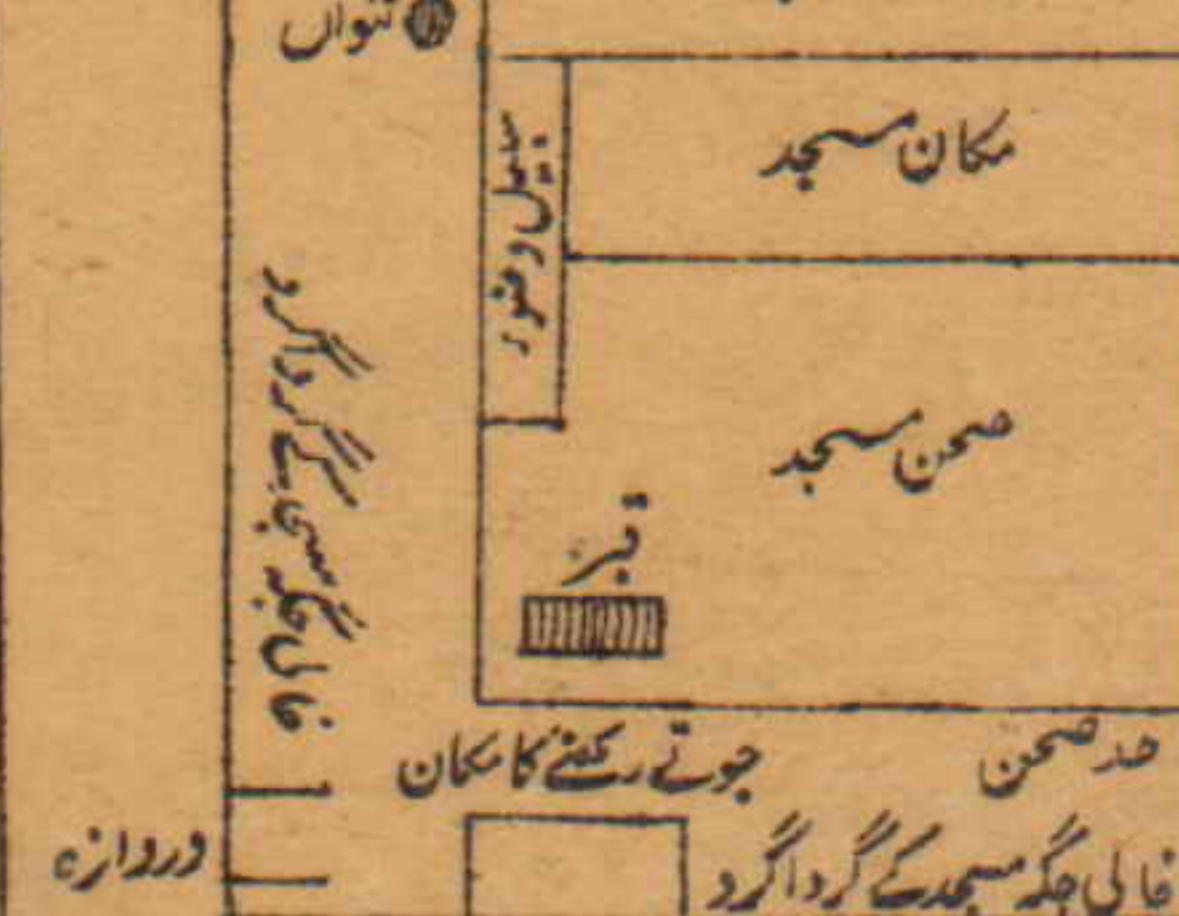 کنواں
مکان مسجد
سبیل وضوء
خالی جگہ مسجد کے گرداگرد
صحن مسجد
قبر
حد صحن
جوتے رکھنے کا مکان
دروازہ
خالی جگہ مسجد کے گرداگرد